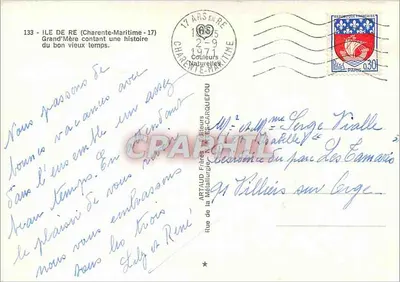 133 - ILE DE RE (Charente-Maritime - 17)
Grand'Mère contant une histoire
du bon vieux temps.
17 ARS EN RE
2-9
1971
CHARENTE-MARITIME
Couleurs
Naturelles
0,30
Nous passons de
bonnes vacances avec
dans l'ensemble un assez
beau temps. En attendant
le plaisir de vous
nous vous embrassons
tous les trois
Lily et René
ARTAUD Frères, Editeurs
Rue de la Métallurgie CARQUEFOU
CPARAMA
Mr et Mme Serge Vialle
Résidence du parc Les Tamaris
91 Villiers sur Orge